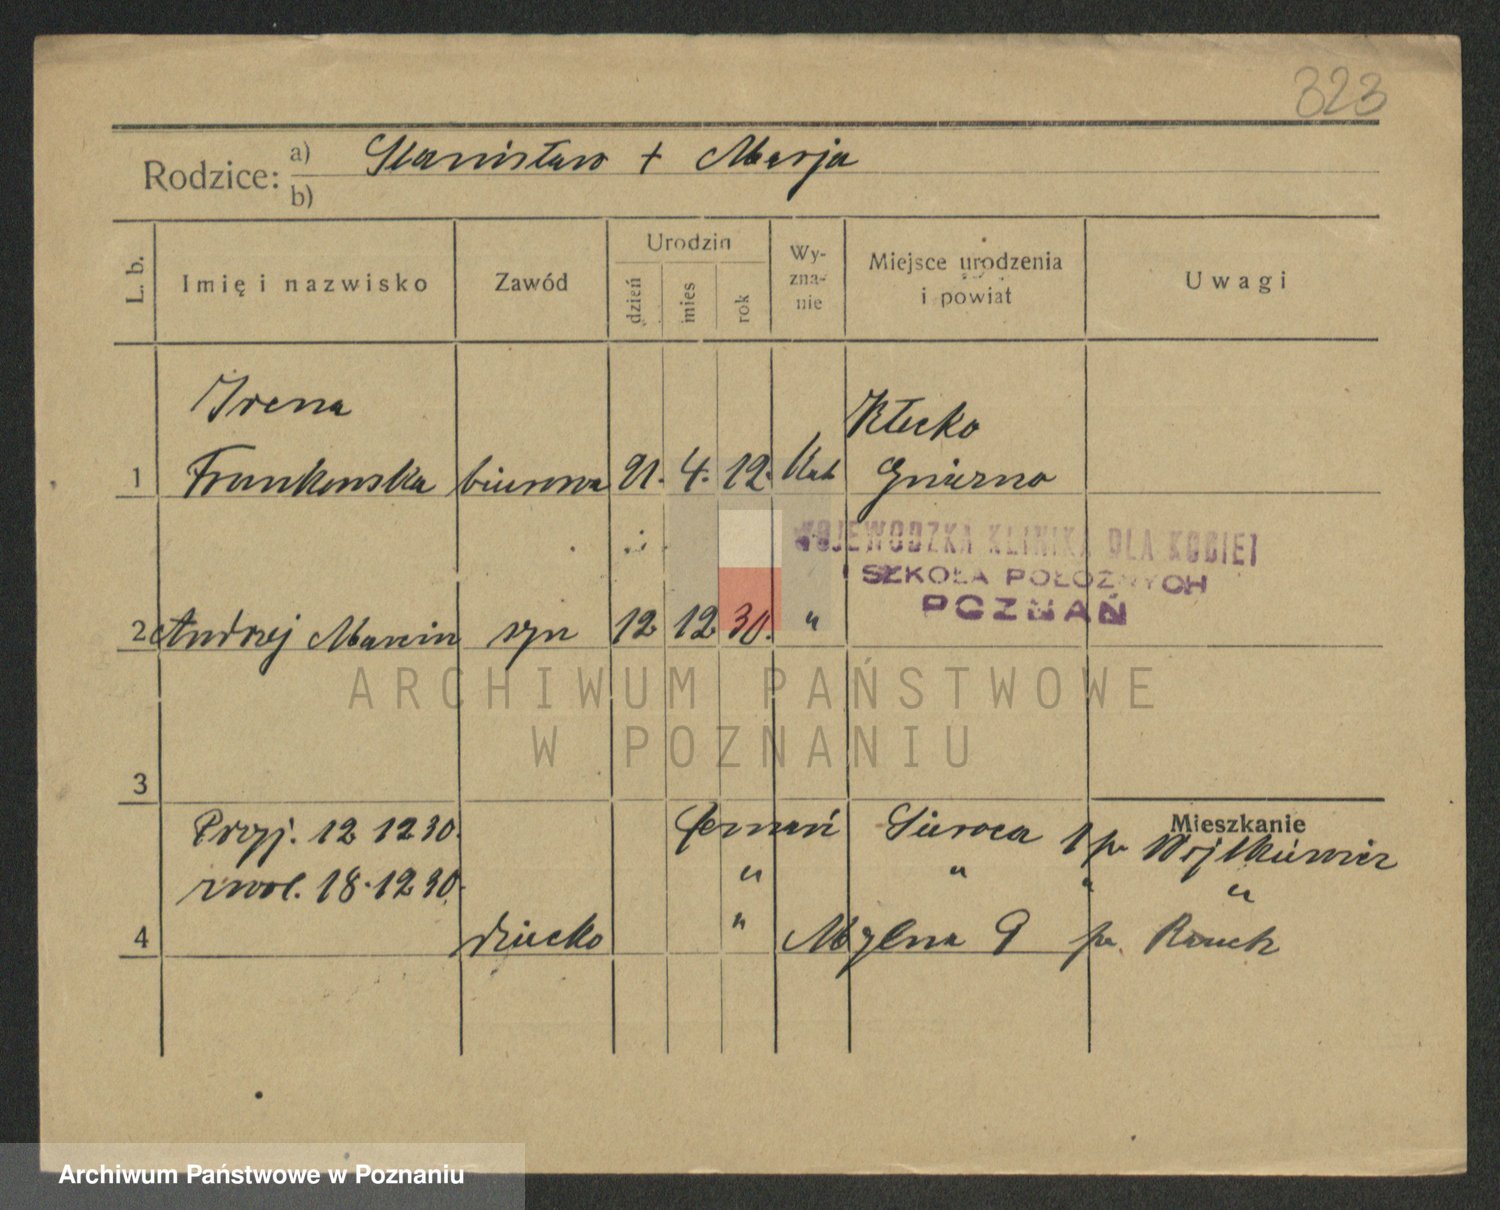 323
Rodzice: a) Stanisław + Marja
b)
L. b.
Imię i nazwisko
Zawód
Urodzin
dzień
mies
rok
Wy-
zna-
nie
Miejsce urodzenia
i powiat
Uwagi
Irena Kłecko
1 Frankowska biurowa 21. 4. 12. Kat Gniezno
WOJEWODZKA KLINIKA DLA KOBIET
I SZKOŁA POŁOŻNYCH
POZNAŃ
2 Andrzej Marcin syn 12 12 30. "
ARCHIWUM PAŃSTWOWE
W POZNANIU
3
Mieszkanie
Przyj. 12 12 30. Poznań 1 pr
zwol. 18. 12 30. " " " "
4 dziecko " Mylna 9 pr. Rauch
Archiwum Państwowe w Poznaniu